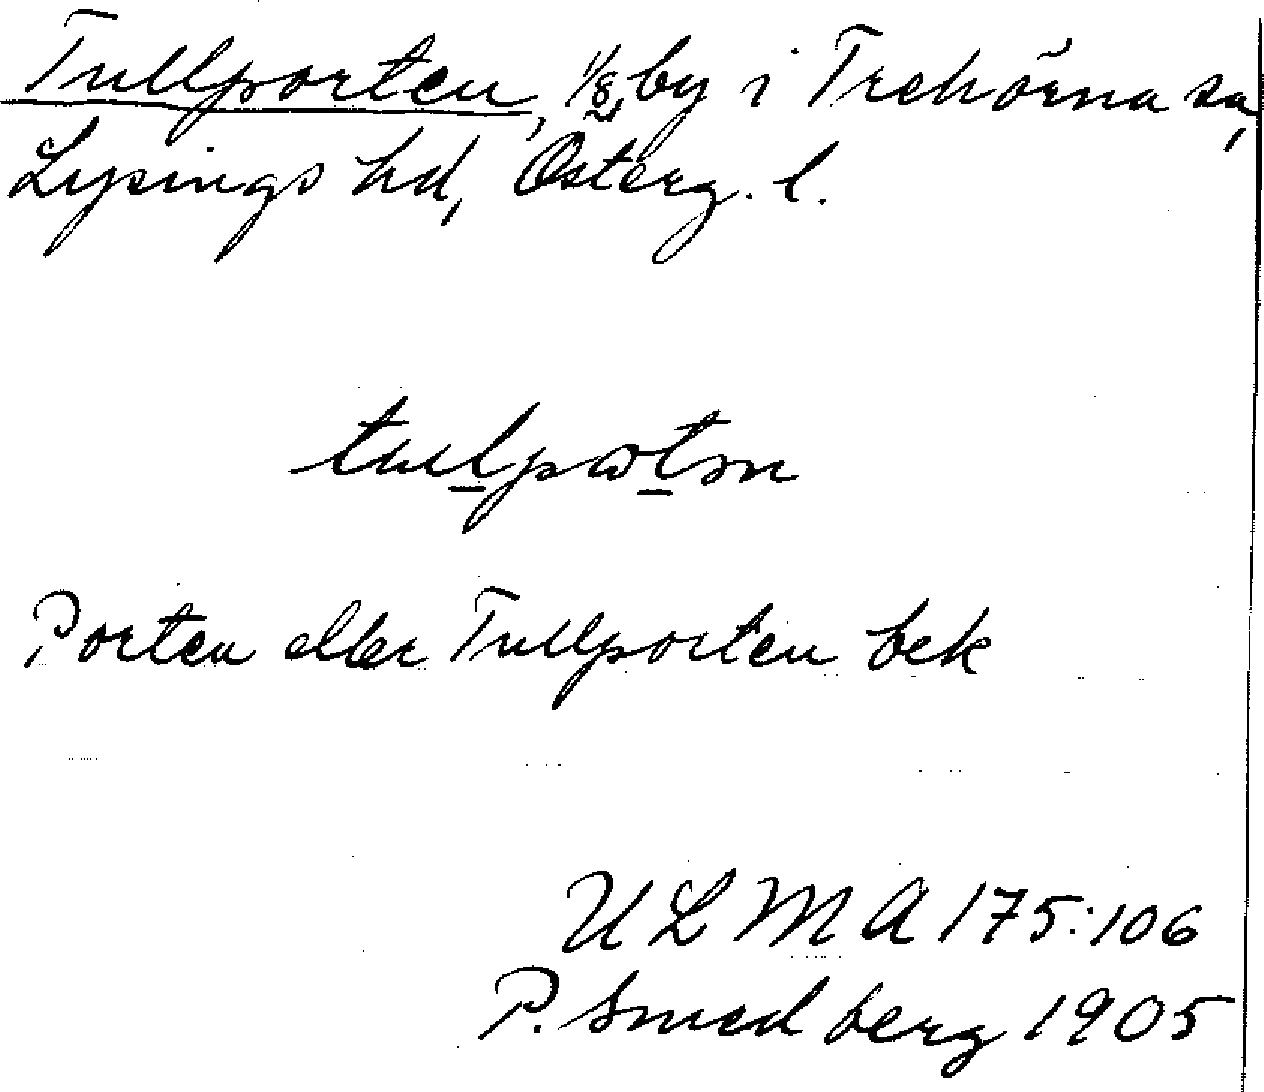 Tullporten, 1/8, by i Trehörna sn,
Lysings hd, Österg. l.
tulpɷtən
Porten eller Tullporten bek
ULMA 175:106
P. Smedberg 1905